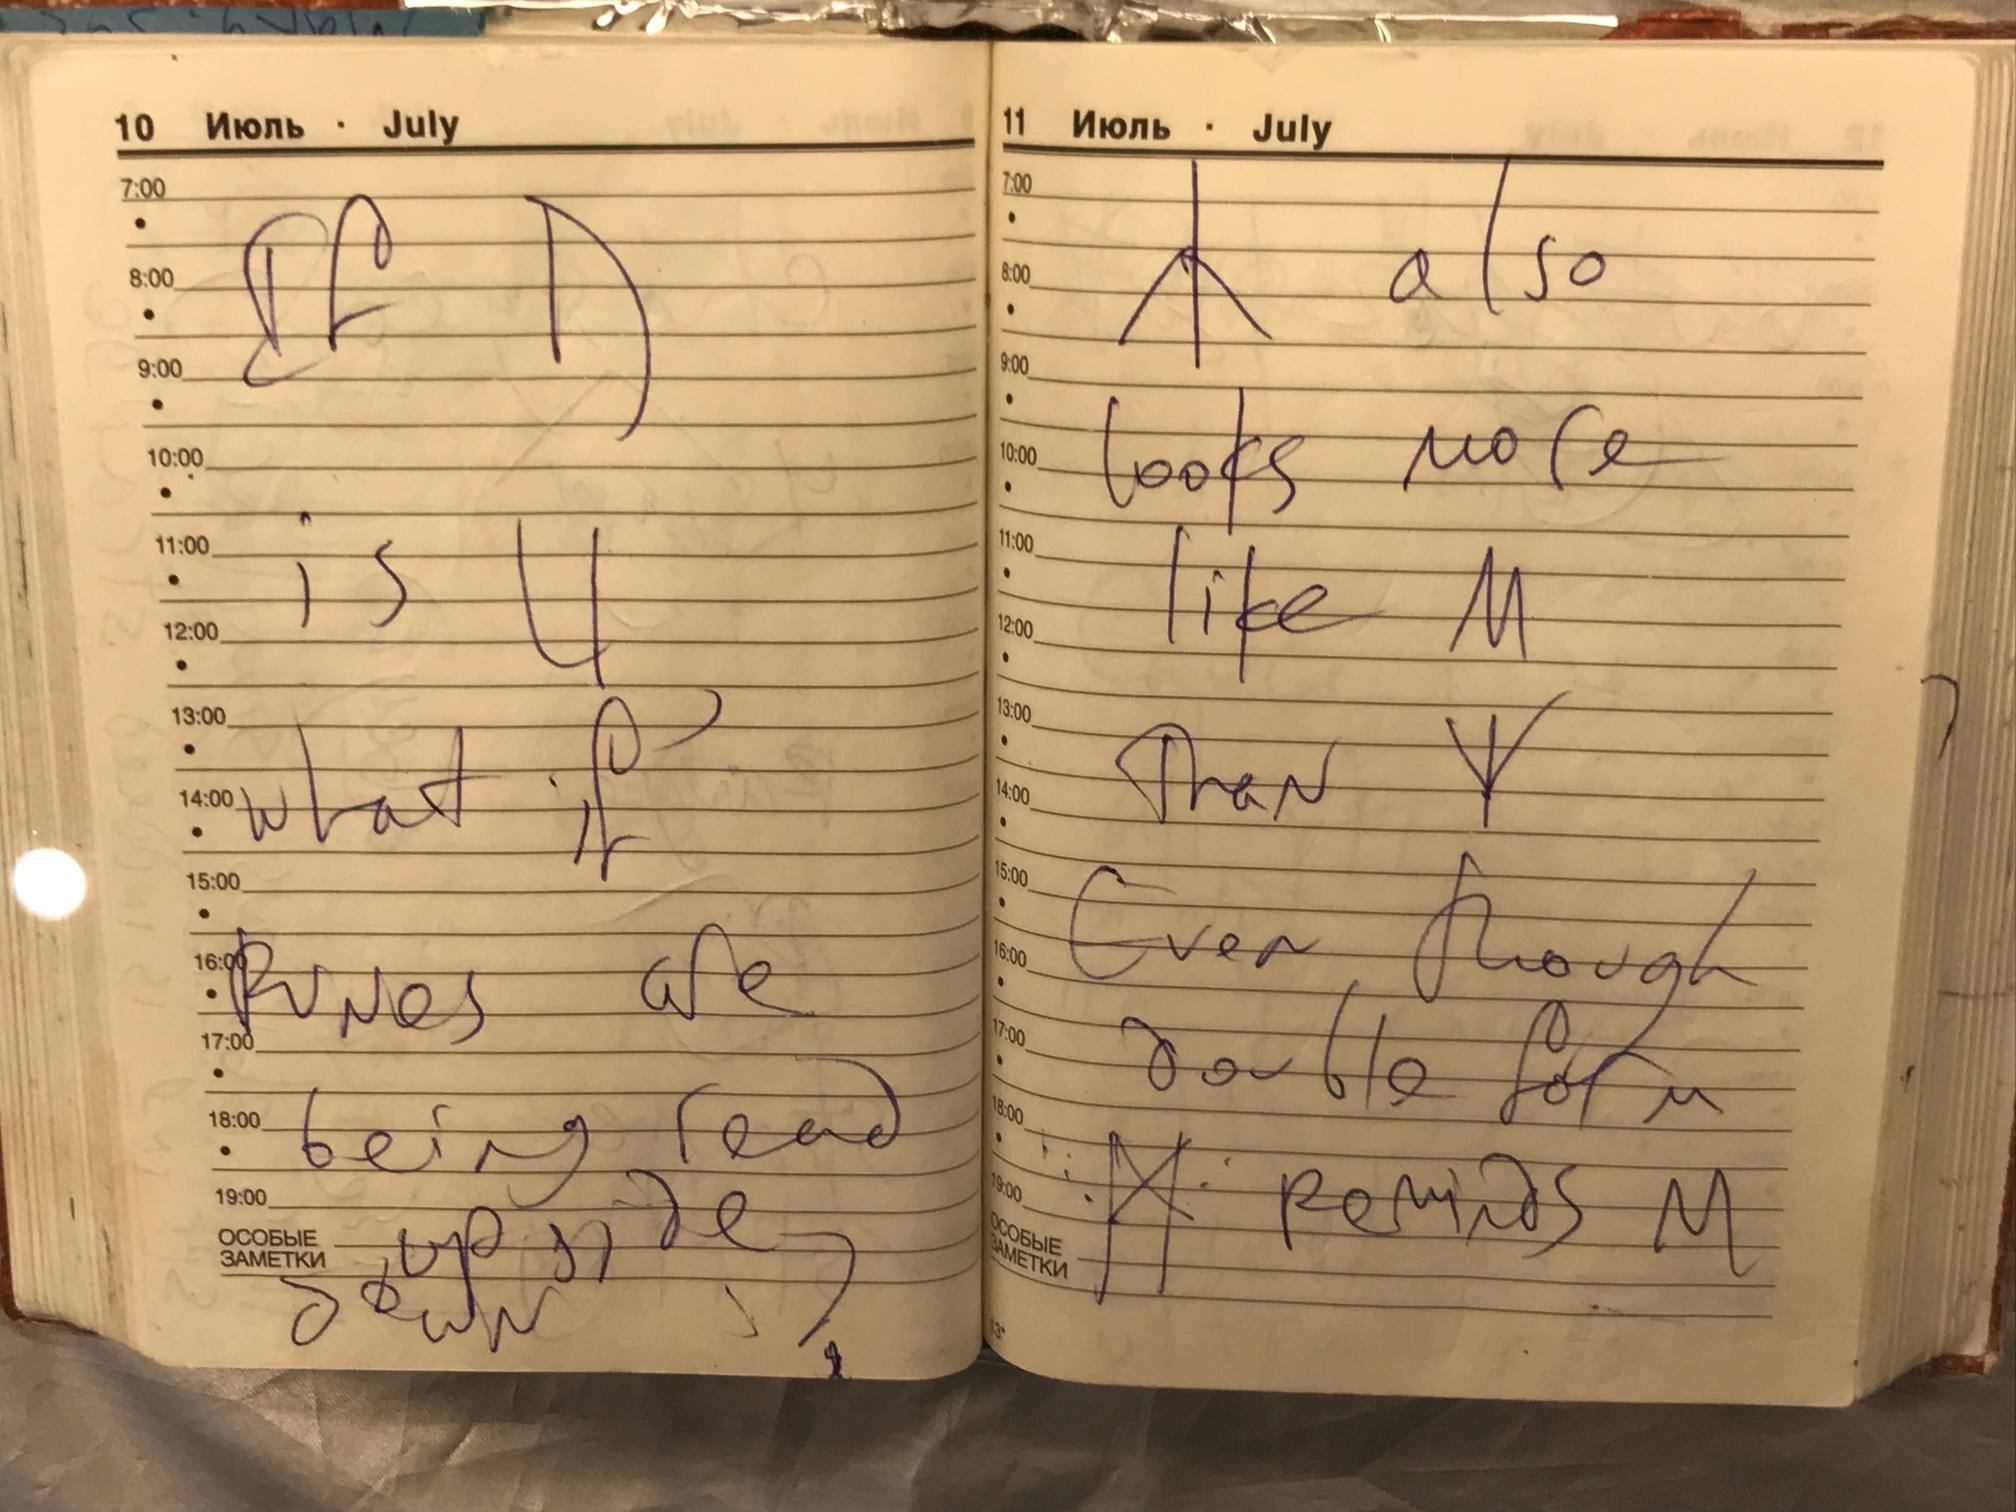 10 Июль · July
7:00
8:00
9:00
10:00
11:00
12:00
13:00
14:00
15:00
16:00
17:00
18:00
19:00
ОСОБЫЕ
ЗАМЕТКИ
If ᚢ
is U
what if
Runes are
being read
upside
down ?
11 Июль · July
7:00
8:00
9:00
10:00
11:00
12:00
13:00
14:00
15:00
16:00
17:00
18:00
19:00
ОСОБЫЕ
ЗАМЕТКИ
13*
ᛦ also
looks more
like M
Than ᛉ
Even though
double form
ᛗ reminds M